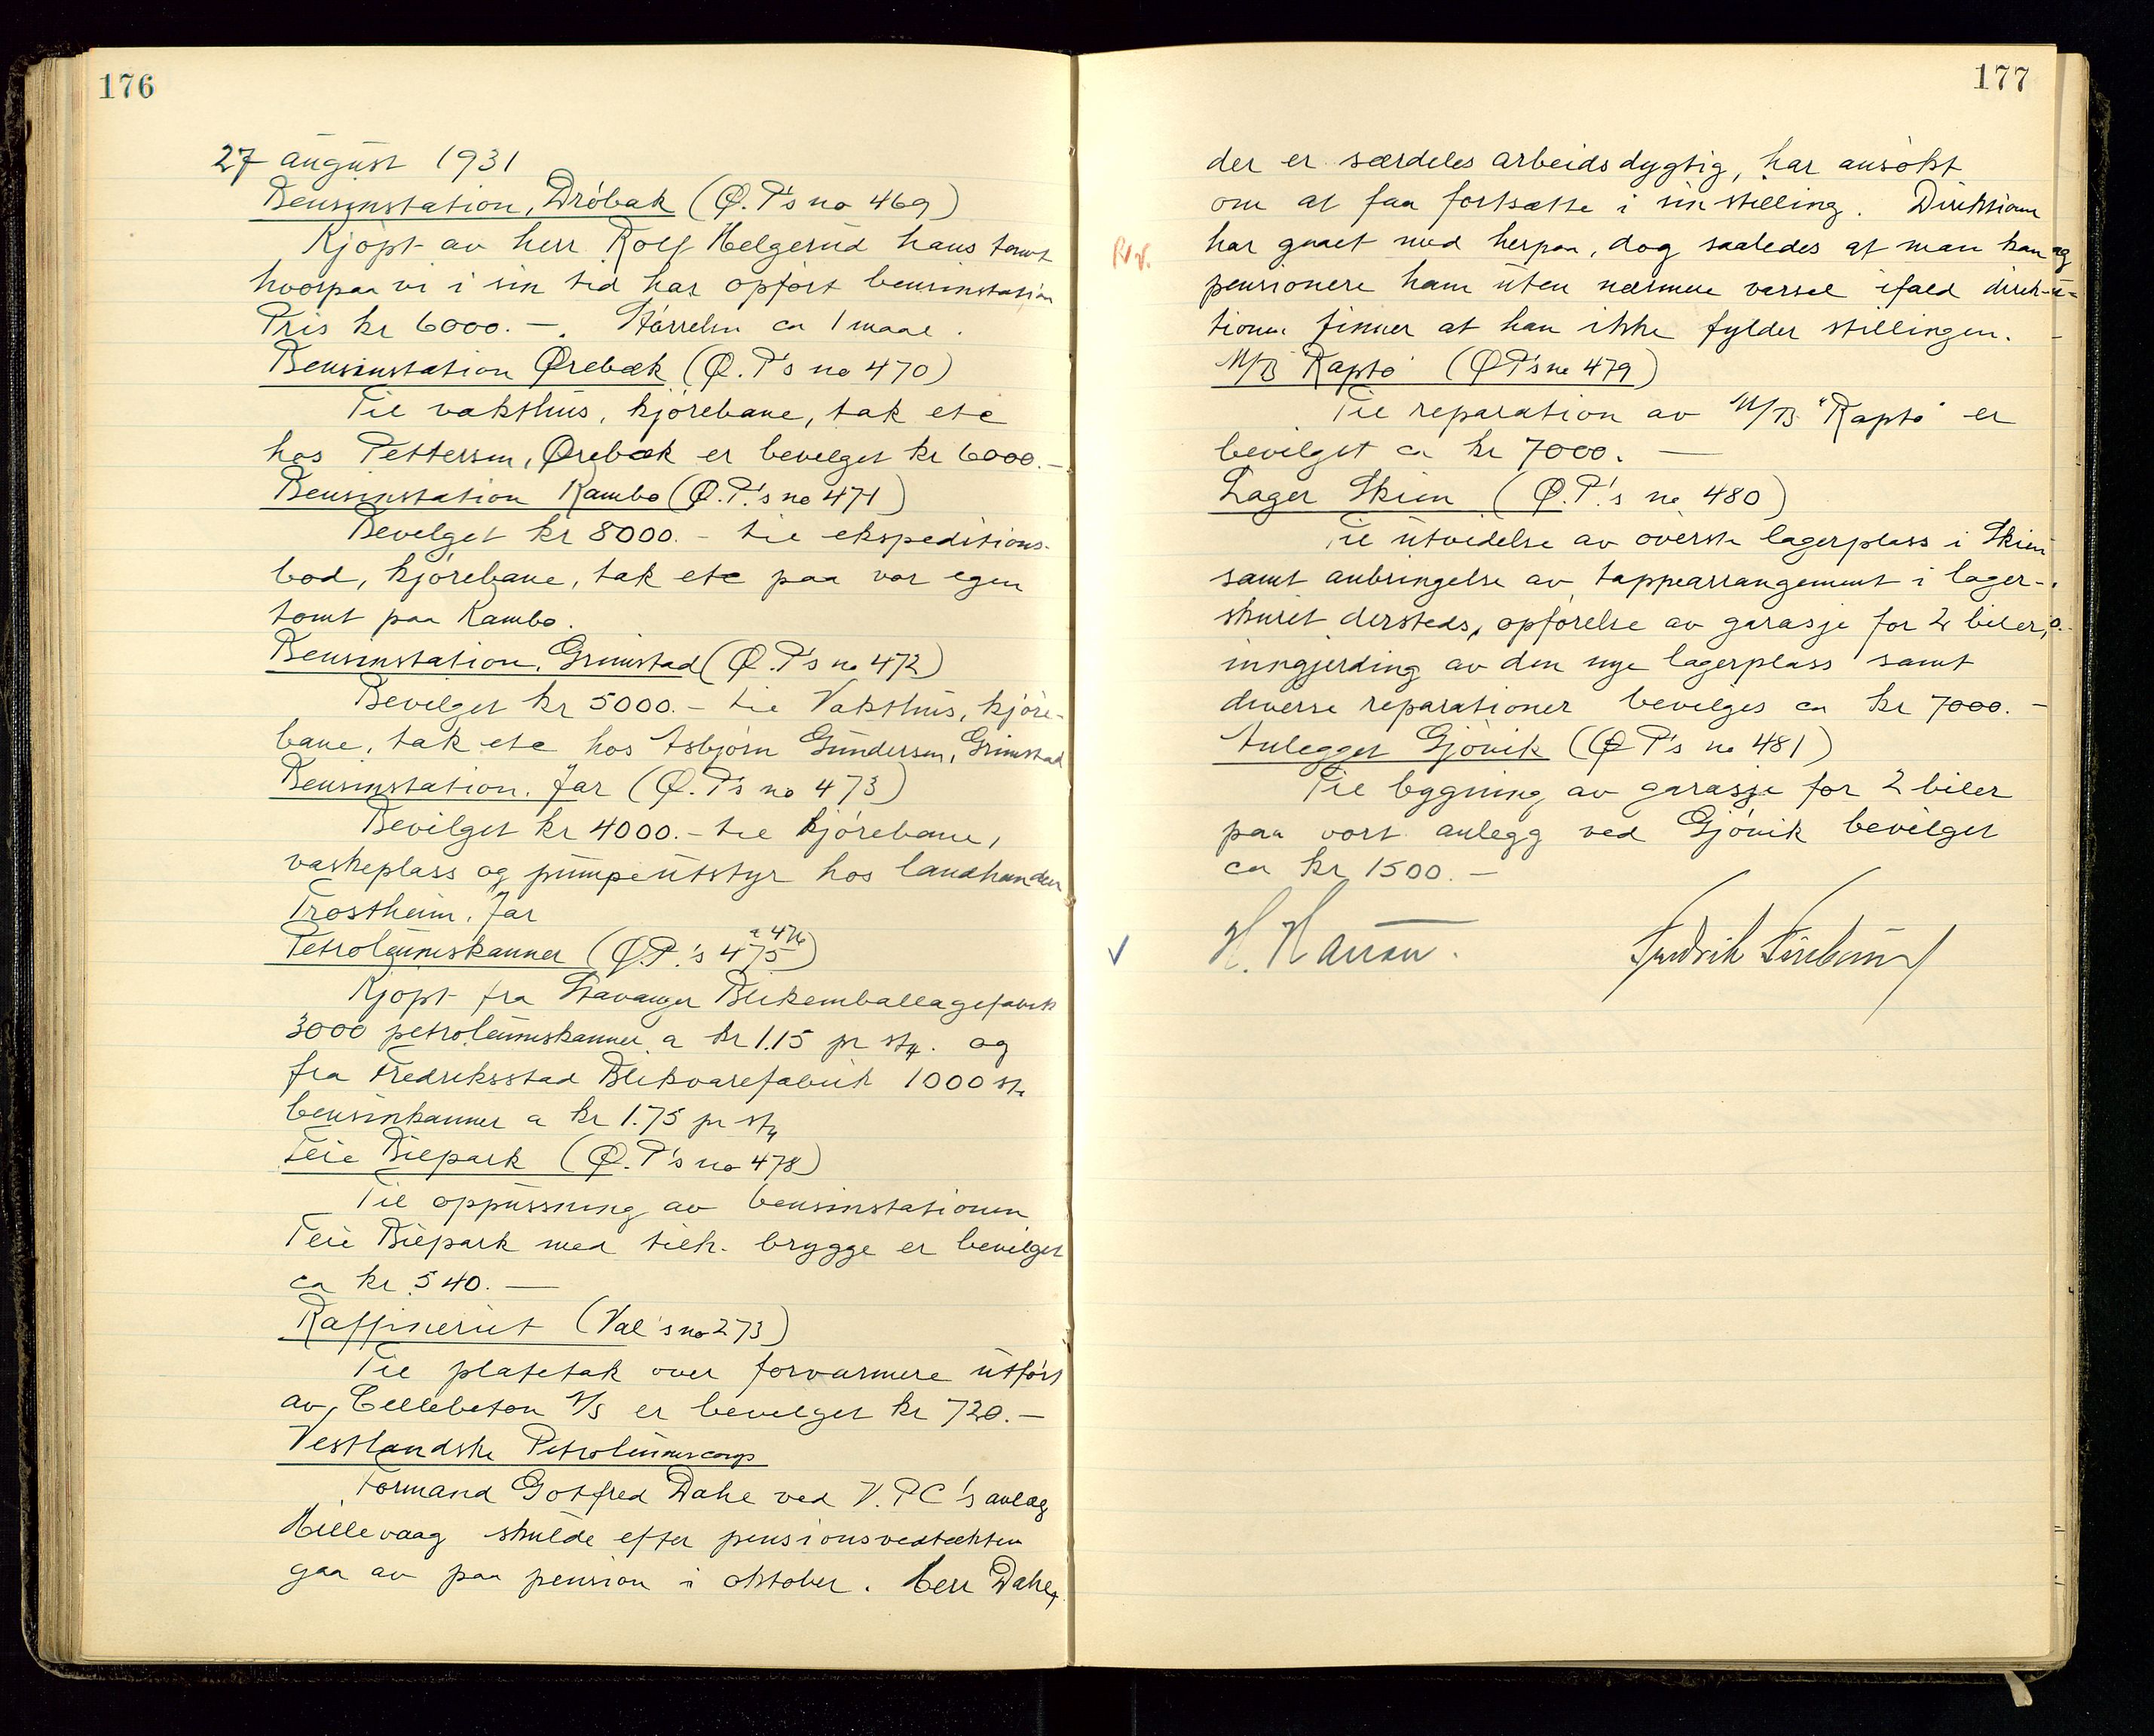 176
27 august 1931
Bensinstation, Drøbak (Ø.P's no 469)
Kjøpt av herr Rolf Helgerud hans tomt
hvorpaa vi i sin tid har opført bensinstasjon
Pris kr 6000.—. Størrelse ca 1 maal.
Bensinstation Ørebæk (Ø.P's no 470)
Til vakthus, kjørebane, tak etc
hos Pettersen, Ørebæk er bevilget kr 6000.—
Bensinstation Kambo (Ø.P.'s no 471)
Bevilget kr 8000.- til ekspeditions-
bod, kjørebane, tak etc paa vor egen
tomt paa Kambo.
Bensinstation, Grimstad (Ø.P's no 472)
Bevilget kr 5000.- til Vakthus, kjøre-
bane, tak etc hos Asbjørn Gundersen, Grimstad
Bensinstation, Jar (Ø.P's no 473)
Bevilget kr 4000.- til kjørebane,
vaskeplass og pumpeutstyr hos landhandler
Trostheim, Jar
Petroleumskanner (Ø.P.'s 475 a 476)
Kjøpt fra Stavanger Blikemballagefabrik
3000 petroleumskanner a kr 1.15 pr stk. og
fra Fredriksstad Blikvarefabrik 1000 stk
bensinkanner a kr 1.75 pr stk
Teie Bilpark (Ø.P's no 478)
Til oppussning av bensinstationen
Teie Bilpark med tilh. brygge er bevilget
ca kr 540.—
Raffineriet (Val's no 273)
Til platetak over forvarmere utført
av Cellebeton A/S er bevilget kr 720.—
Vestlandske Petroleumscomp
Formand Gotfred Dahle ved V.PC's anlæg
Hillevaag skulde efter pensionsvedtekten
gaa av paa pension i oktober. Herr Dahle,
177
der er særdeles arbeidsdygtig, har ansøkt
om at faa fortsætte i sin stilling. Direktionen
har gaaet med herpaa, dog saaledes at man kan
pensionere ham uten nærmere varsel ifald direk-
tionen finner at han ikke fylder stillingen.
M/B "Rapto" (ØP's no 479)
Til reparation av M/B "Rapto" er
bevilget ca kr 7000.—
Lager Skien (Ø.P.'s no 480)
Til utvidelse av øverste lagerplass i Skien
samt anbringelse av tappearrangement i lager-
skuret dersteds, opførelse av garasje for 2 biler,
inngjerding av den nye lagerplass samt
diverse reparationer bevilges ca kr 7000.—
Anlegget Gjøvik (Ø P's no 481)
Til bygning av garasje for 2 biler
paa vort anlegg ved Gjøvik bevilget
ca kr 1500.—
H. Hansen. Fredrik